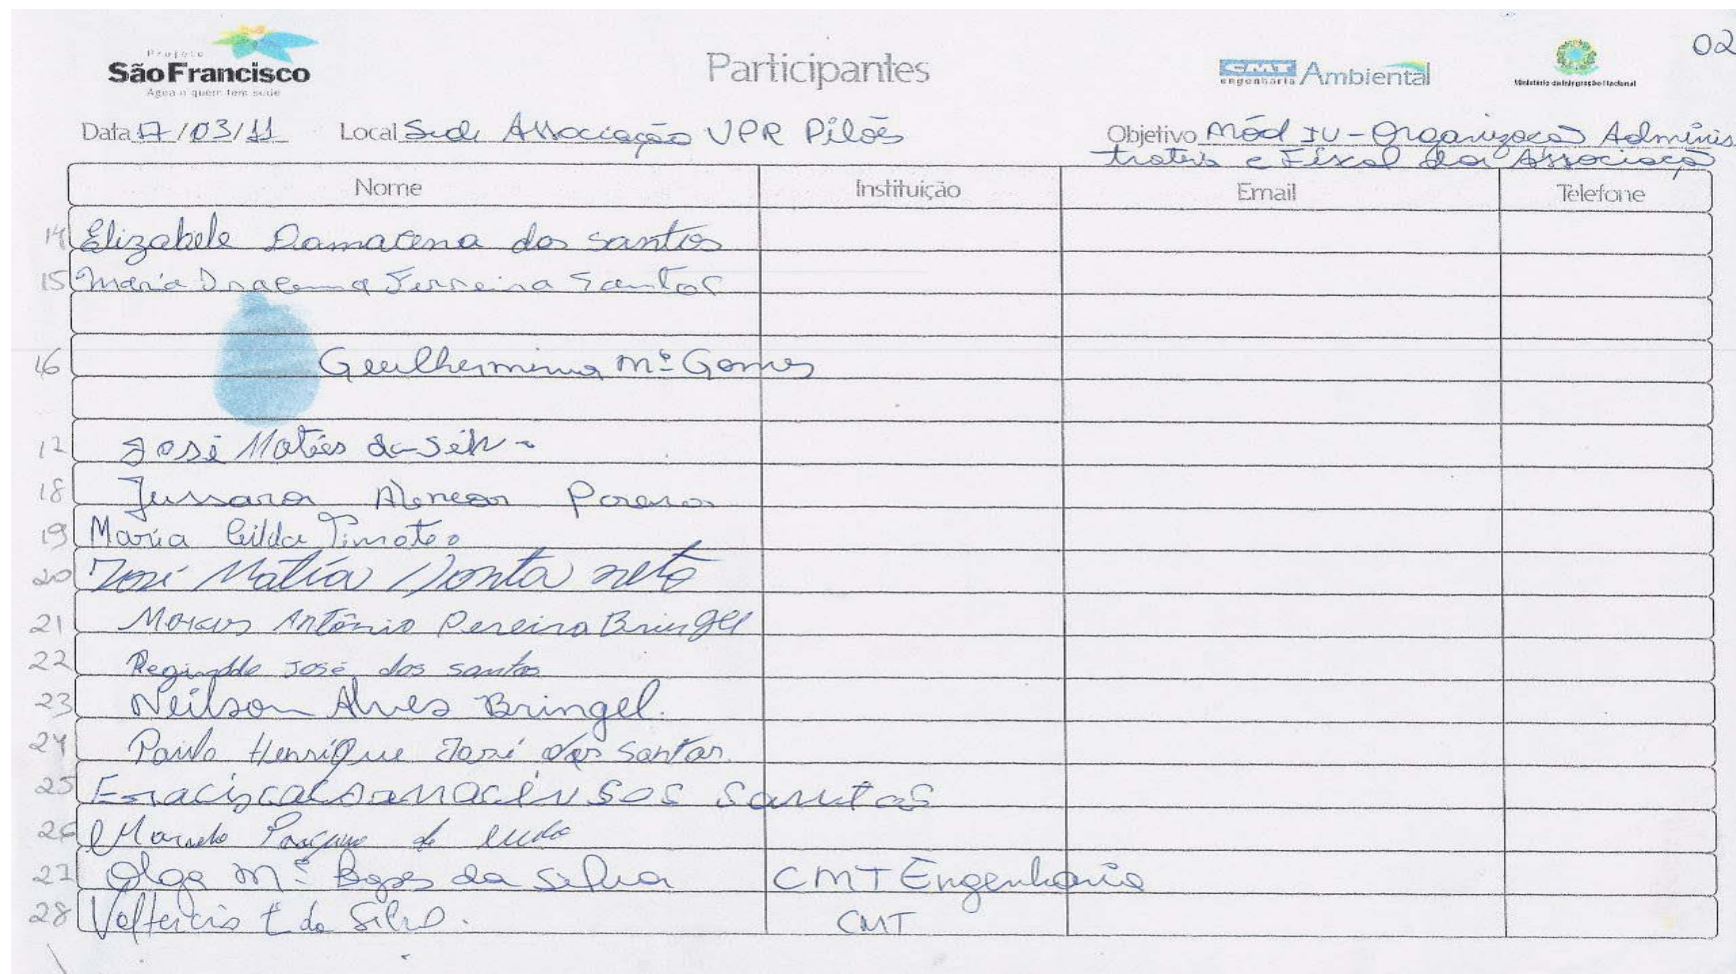 02
Projeto
São Francisco
Água a quem tem sede
Participantes
CMT Ambiental
engenharia
Ministério da Integração Nacional
Data 17/03/11 Local Sede Associação VPR Pilões Objetivo Mód IV - Organização Adminis
trativa e Fiscal da Associaçã
Nome Instituição Email Telefone
14 Elizabele Damacena dos santos
15 Maria Ferreira Santos
16 Geulhermina Mª Gomes
17 José Matias da Silva
18 Jussara Alencar Pereira
19 Maria Gilda Timoteo
20 José Matia neto
21 Marcus Antônio Pereira Bringel
22 Reginaldo José dos santos
23 Neilson Alves Bringel.
24 Paulo Henrique José dos Santos
25 santos
26 de
27 Olga Mª da Silva CMT Engenharia
28 da Silva. CMT